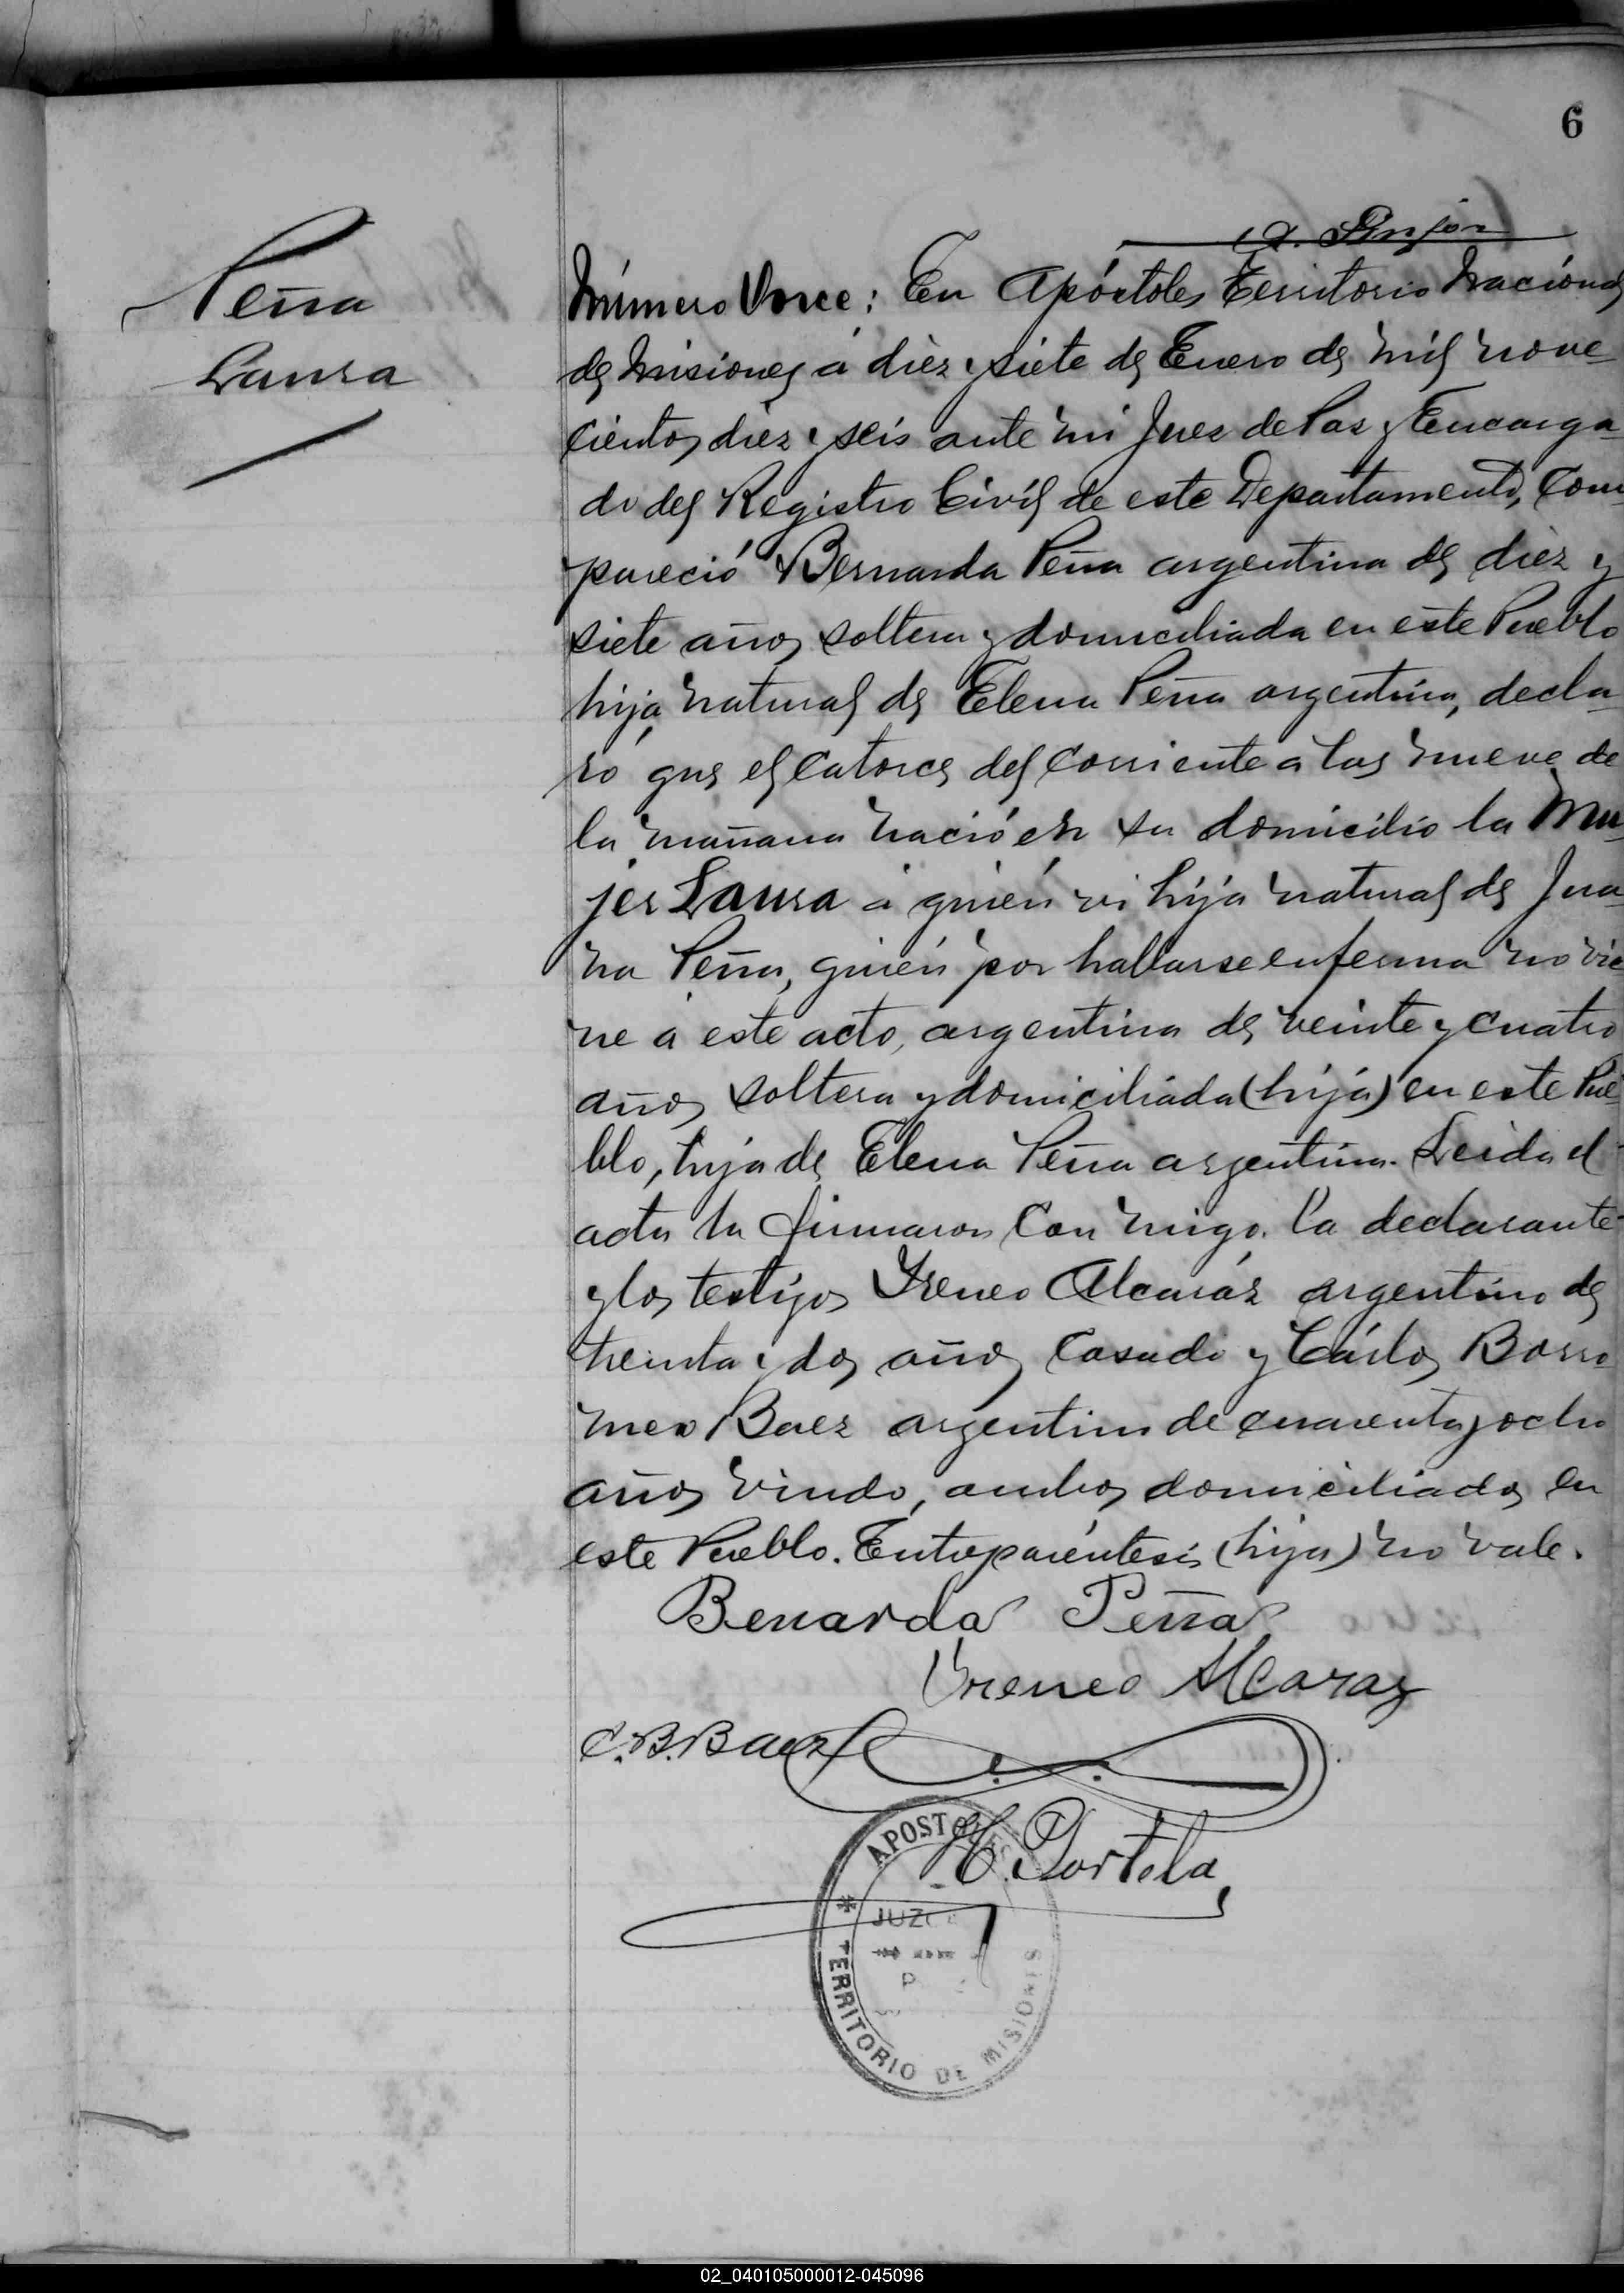 6
Peña
Laura
Número Once: En Apóstoles Territorio Nacional
de Misiones á diez y siete de Enero de mil nove-
cientos diez y seis ante mi Juez de Paz y Encarga-
do del Registro Civil de este Departamento, Com-
pareció Bernarda Peña argentina de diez y
siete años soltera y domiciliada en este Pueblo
hija natural de Elena Peña argentina, decla-
ró que el catorce del corriente a las nueve de
la mañana nació en su domicilio la Mu-
jer Laura a quién vi hija natural de Jua-
na Peña, quién por hallarse enferma no vie-
ne á este acto, argentina de veinte y cuatro
años soltera y domiciliada (hija) en este Pue-
blo, hija de Elena Peña argentina. Leida el
acta la firmaron con migo. la declarante
y los testigos Yreneo Alcaráz argentino de
treinta y dos años Casado y Cárlos Borro-
meo Baez argentino de cuarenta y ocho
años viudo, ambos domiciliados en
este Pueblo. Entreparéntesis (hija) no vale.
Benarda Peña
Yreneo Alcaraz
C.B. Baez
H. Portela
APOSTOLES
JUZ
P
* TERRITORIO DE MISIONES
02_040105000012-045096